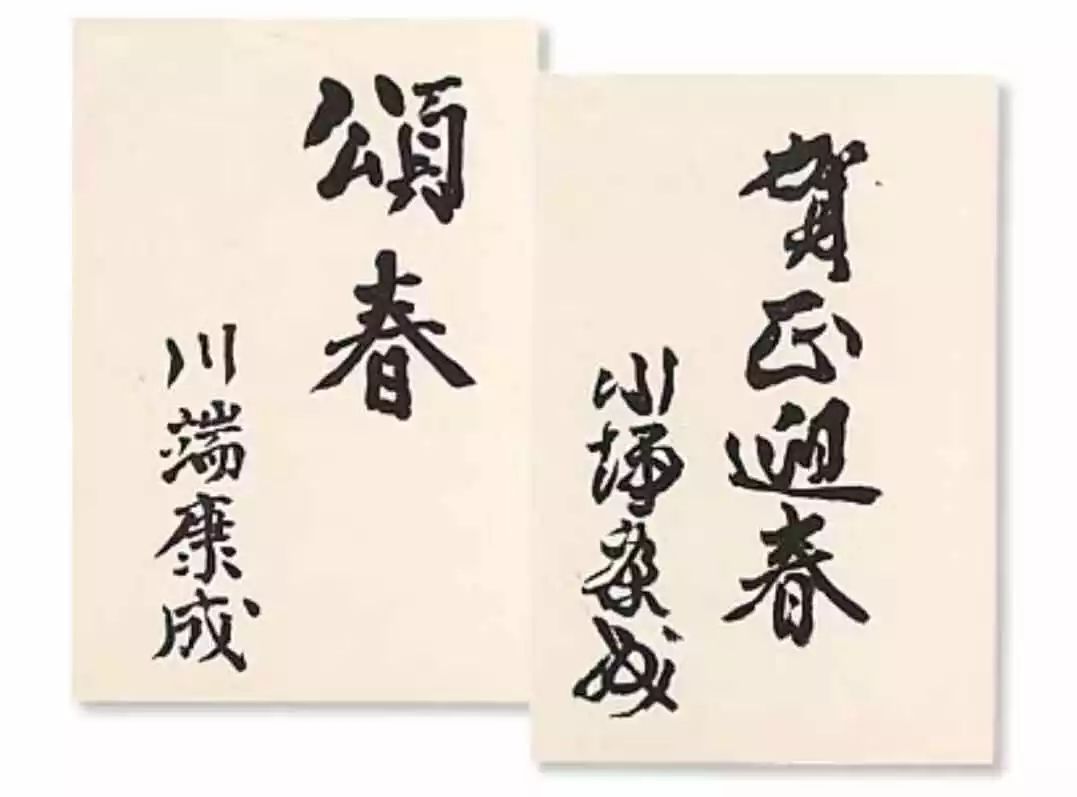 賀正迎春
川端康成
頌春
川端康成